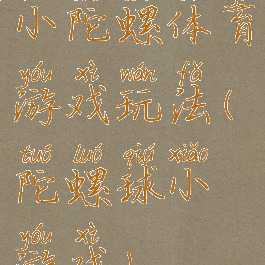 小陀螺体育
yóu xì wán fǎ
游戏玩法(
tuó luó qiú xiǎo
陀螺球小
yóu xì
游戏)